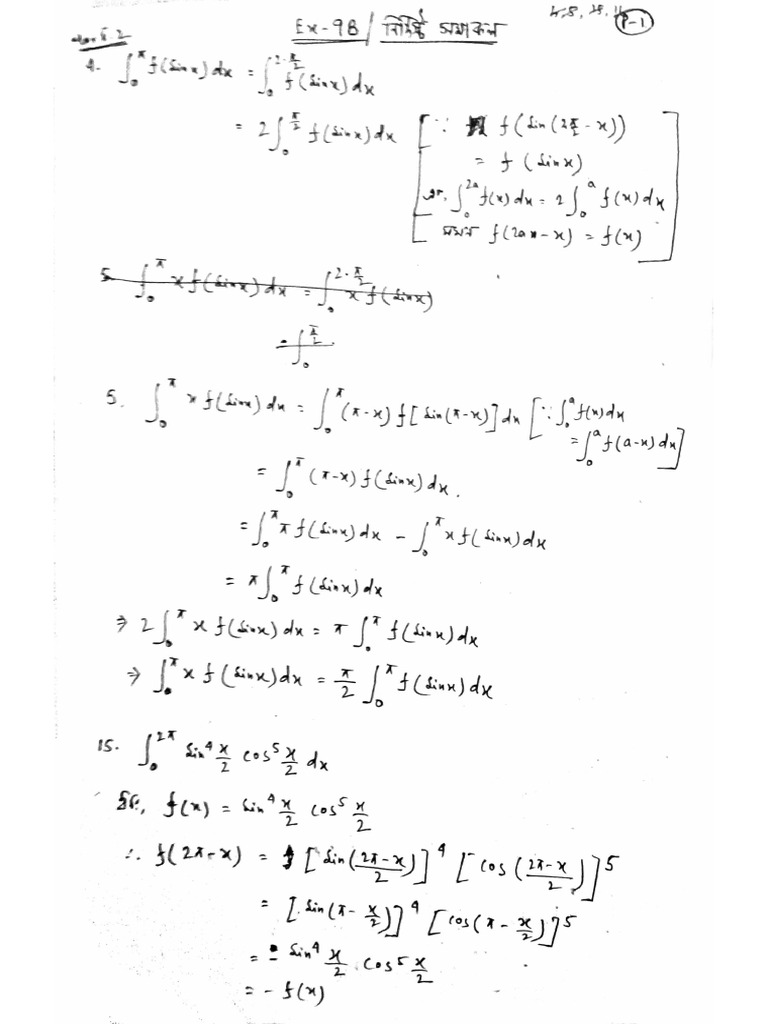 Ex-9B / নির্দিষ্ট সমাকল
P-1
4. ∫₀^π f(sinx) dx = ∫₀^{2·π/2} f(sinx) dx
= 2∫₀^{π/2} f(sinx) dx [∵ f(sin(2π/2 - x))
= f(sinx)
∫₀^{2a} f(x) dx = 2∫₀^a f(x) dx
যখন f(2a - x) = f(x)]
5. ∫₀^π x f(sinx) dx = ∫₀^{2·π/2} x f(sinx)
= ∫₀^{π/2}
5. ∫₀^π x f(sinx) dx = ∫₀^π (π-x) f[sin(π-x)] dx [∵ ∫₀^a f(x) dx
= ∫₀^a f(a-x) dx]
= ∫₀^π (π-x) f(sinx) dx.
= ∫₀^π π f(sinx) dx - ∫₀^π x f(sinx) dx
= π∫₀^π f(sinx) dx
⇒ 2∫₀^π x f(sinx) dx = π ∫₀^π f(sinx) dx
⇒ ∫₀^π x f(sinx) dx = π/2 ∫₀^π f(sinx) dx
15. ∫₀^{2π} sin⁴ x/2 cos⁵ x/2 dx
f(x) = sin⁴ x/2 cos⁵ x/2
∴ f(2π-x) = [sin(2π-x/2)]⁴ [cos(2π-x/2)]⁵
= [sin(π - x/2)]⁴ [cos(π - x/2)]⁵
= - sin⁴ x/2 . cos⁵ x/2
= - f(x)